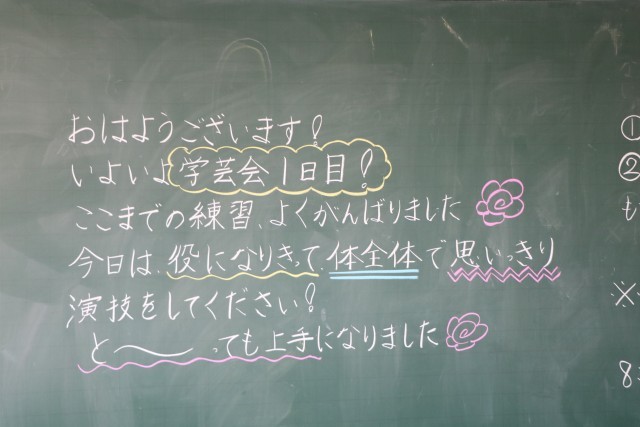 おはようございます！
いよいよ学芸会1日目！
ここまでの練習、よくがんばりました
今日は、役になりきって、体全体で思いっきり
演技をしてください！
と〜〜っても上手になりました
①
②
も
※
8: